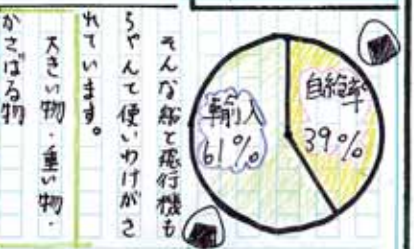 自給率
39%
輸入
61%
そんな船と飛行機も
ちゃんて使いわけがさ
れています。
大きい物・重い物・
かさばる物